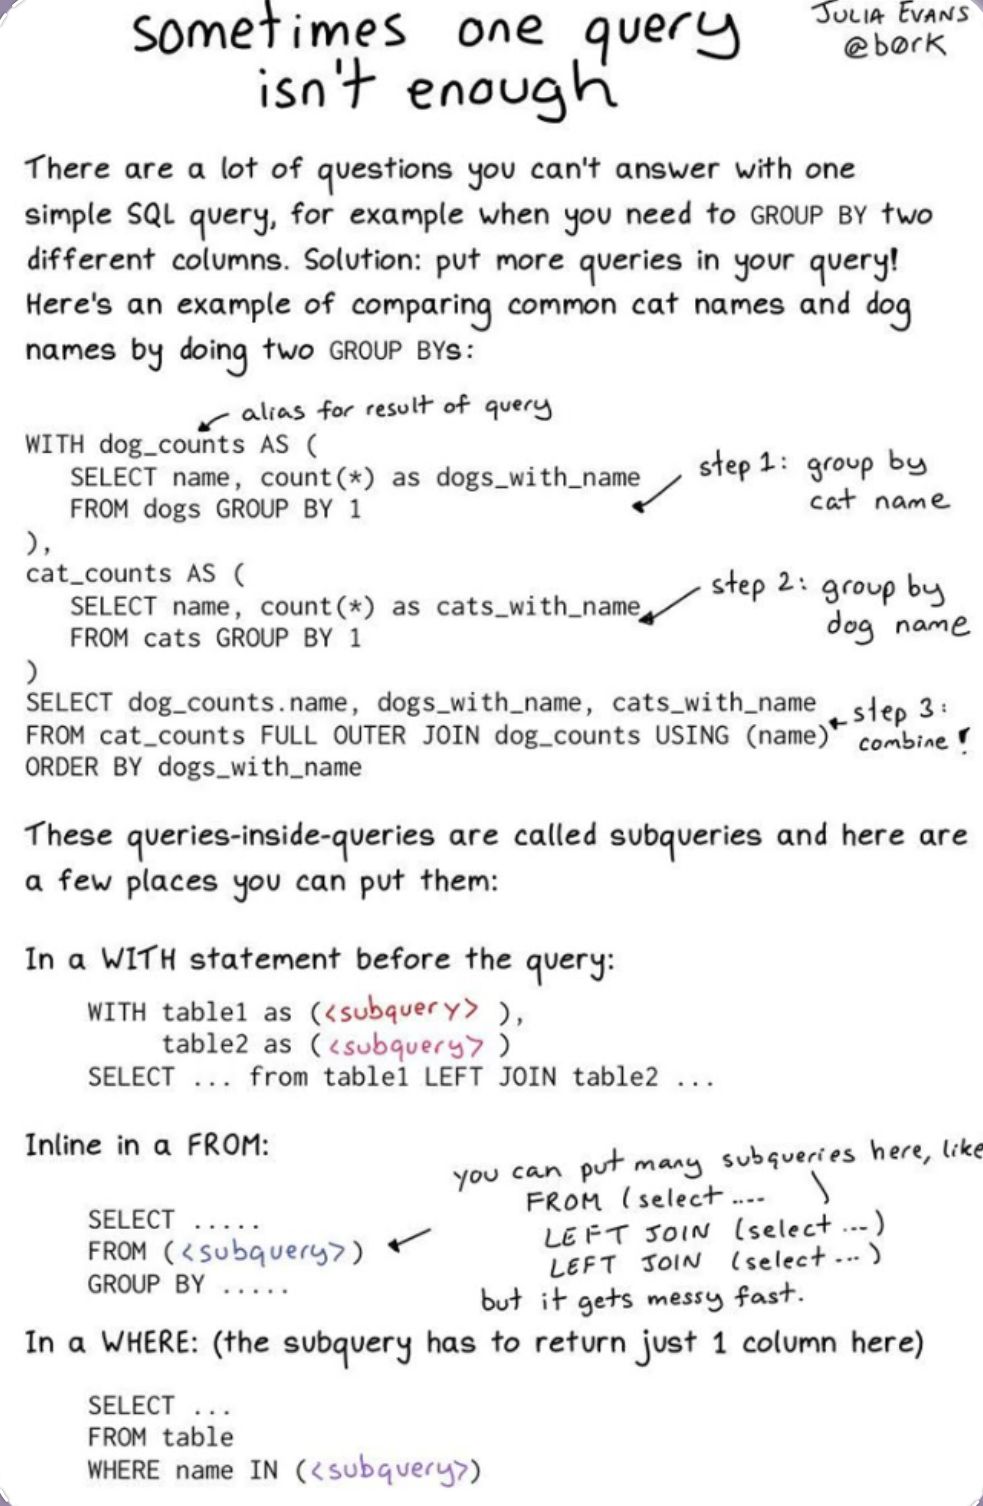 sometimes one query
isn't enough
JULIA EVANS
@børk
There are a lot of questions you can't answer with one
simple SQL query, for example when you need to GROUP BY two
different columns. Solution: put more queries in your query!
Here's an example of comparing common cat names and dog
names by doing two GROUP BYs:
alias for result of query
WITH dog_counts AS (
SELECT name, count(*) as dogs_with_name
FROM dogs GROUP BY 1
),
step 1: group by
cat name
cat_counts AS (
SELECT name, count(*) as cats_with_name
FROM cats GROUP BY 1
)
step 2: group by
dog name
SELECT dog_counts.name, dogs_with_name, cats_with_name
FROM cat_counts FULL OUTER JOIN dog_counts USING (name)
ORDER BY dogs_with_name
step 3:
combine!
These queries-inside-queries are called subqueries and here are
a few places you can put them:
In a WITH statement before the query:
WITH table1 as (<subquery> ),
table2 as ( <subquery> )
SELECT ... from table1 LEFT JOIN table2 ...
Inline in a FROM:
SELECT .....
FROM (<subquery>)
GROUP BY .....
you can put many subqueries here, like
FROM (select .... )
LEFT JOIN (select ...)
LEFT JOIN (select ... )
but it gets messy fast.
In a WHERE: (the subquery has to return just 1 column here)
SELECT ...
FROM table
WHERE name IN (<subquery>)